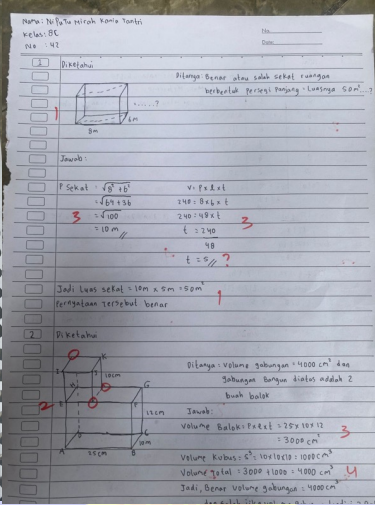 Nama: Ni Putu Mirah Kania Tantri
Kelas: 8C
No : 42
No.
Date:
1 Diketahui
Ditanya: Benar atau salah sekat ruangan
berbentuk persegi panjang. Luasnya 50 m²...?
1
......?
6m
8m
Jawab:
P Sekat = √8² + 6²
= √64 + 36
3 = √100
= 10 m
V = P x l x t
240 = 8 x 6 x t
240 = 48 x t 3
t = 240
48
t = 5 ?
Jadi Luas sekat = 10m x 5m = 50m² 1
Pernyataan tersebut benar
2 Diketahui
Ditanya: Volume gabungan = 4000 cm³ dan
gabungan bangun diatas adalah 2
buah balok
K
I
J
10cm
G
E
F
2
12cm
D
C
10m
A
B
25cm
Jawab:
Volume Balok: P x l x t = 25 x 10 x 12
= 3000 cm³ 3
Volume Kubus = s³ = 10 x 10 x 10 = 1000 cm³
Volume total = 3000 + 1000 = 4000 cm³ 4
Jadi, Benar volume gabungan = 4000 cm³